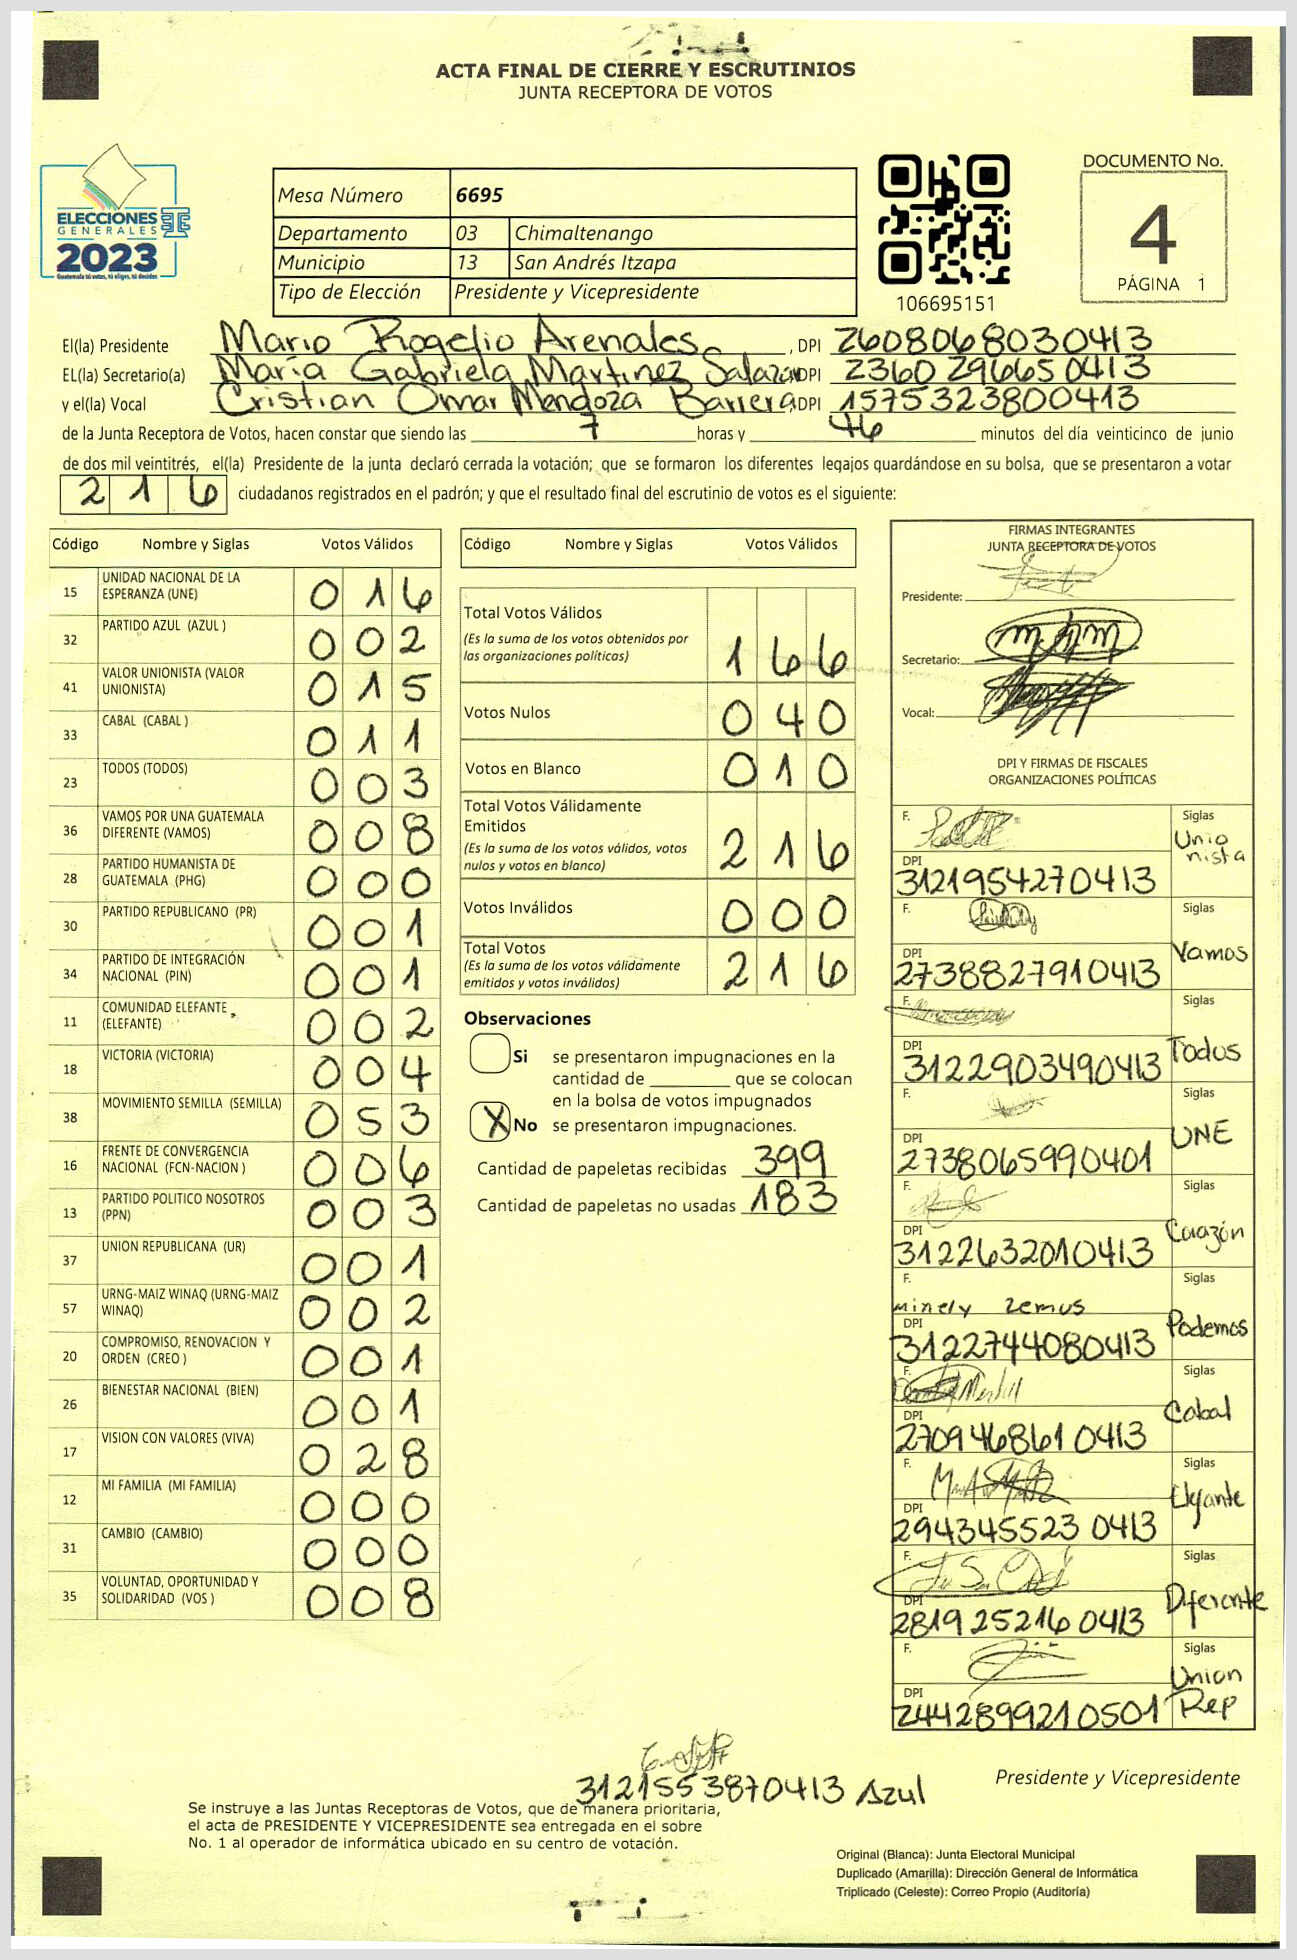 ACTA FINAL DE CIERRE Y ESCRUTINIOS
JUNTA RECEPTORA DE VOTOS
ELECCIONES
GENERALES
2023
Guatemala tú votas, tú eliges, tú decides
Mesa Número 6695
Departamento 03 Chimaltenango
Municipio 13 San Andrés Itzapa
Tipo de Elección Presidente y Vicepresidente
106695151
DOCUMENTO No.
4
PÁGINA 1
El(la) Presidente Mario Rogelio Arenales, DPI 2608068030413
EL(la) Secretario(a) María Gabriela Martinez Salazar, DPI 2360 29665 0413
y el(la) Vocal Cristian Omar Mendoza Barrera, DPI 1575323800413
de la Junta Receptora de Votos, hacen constar que siendo las 7 horas y 46 minutos del día veinticinco de junio
de dos mil veintitrés, el(la) Presidente de la junta declaró cerrada la votación; que se formaron los diferentes legajos guardándose en su bolsa, que se presentaron a votar
216 ciudadanos registrados en el padrón; y que el resultado final del escrutinio de votos es el siguiente:
Código Nombre y Siglas Votos Válidos
15 UNIDAD NACIONAL DE LA ESPERANZA (UNE) 016
32 PARTIDO AZUL (AZUL ) 002
41 VALOR UNIONISTA (VALOR UNIONISTA) 015
33 CABAL (CABAL ) 011
23 TODOS (TODOS) 003
36 VAMOS POR UNA GUATEMALA DIFERENTE (VAMOS) 008
28 PARTIDO HUMANISTA DE GUATEMALA (PHG) 000
30 PARTIDO REPUBLICANO (PR) 001
34 PARTIDO DE INTEGRACIÓN NACIONAL (PIN) 001
11 COMUNIDAD ELEFANTE (ELEFANTE) 002
18 VICTORIA (VICTORIA) 004
38 MOVIMIENTO SEMILLA (SEMILLA) 053
16 FRENTE DE CONVERGENCIA NACIONAL (FCN-NACION ) 006
13 PARTIDO POLITICO NOSOTROS (PPN) 003
37 UNION REPUBLICANA (UR) 001
57 URNG-MAIZ WINAQ (URNG-MAIZ WINAQ) 002
20 COMPROMISO, RENOVACION Y ORDEN (CREO ) 001
26 BIENESTAR NACIONAL (BIEN) 001
17 VISION CON VALORES (VIVA) 028
12 MI FAMILIA (MI FAMILIA) 000
31 CAMBIO (CAMBIO) 000
35 VOLUNTAD, OPORTUNIDAD Y SOLIDARIDAD (VOS ) 008
Código Nombre y Siglas Votos Válidos
Total Votos Válidos 166
(Es la suma de los votos obtenidos por
las organizaciones políticas)
Votos Nulos 040
Votos en Blanco 010
Total Votos Válidamente
Emitidos 216
(Es la suma de los votos válidos, votos
nulos y votos en blanco)
Votos Inválidos 000
Total Votos 216
(Es la suma de los votos válidamente
emitidos y votos inválidos)
Observaciones
Si se presentaron impugnaciones en la
cantidad de ________ que se colocan
en la bolsa de votos impugnados
X No se presentaron impugnaciones.
Cantidad de papeletas recibidas 399
Cantidad de papeletas no usadas 183
FIRMAS INTEGRANTES
JUNTA RECEPTORA DE VOTOS
Presidente:
Secretario:
Vocal:
DPI Y FIRMAS DE FISCALES
ORGANIZACIONES POLÍTICAS
F. Siglas Unionista
DPI 3121954270413
F. Siglas Vamos
DPI 2738827910413
F. Siglas Todos
DPI 3122903490413
F. Siglas UNE
DPI 2738065990401
F. Siglas Corazón
DPI 3122632010413
F. minely Lemus Siglas Podemos
DPI 3122744080413
F. Siglas Cabal
DPI 2709468610413
F. Siglas Elefante
DPI 294345523 0413
F. Siglas Diferente
DPI 2819 25216 0413
F. Siglas Union Rep
DPI 2442899210501
3121553870413 Azul
Presidente y Vicepresidente
Se instruye a las Juntas Receptoras de Votos, que de manera prioritaria,
el acta de PRESIDENTE Y VICEPRESIDENTE sea entregada en el sobre
No. 1 al operador de informática ubicado en su centro de votación.
Original (Blanca): Junta Electoral Municipal
Duplicado (Amarilla): Dirección General de Informática
Triplicado (Celeste): Correo Propio (Auditoría)